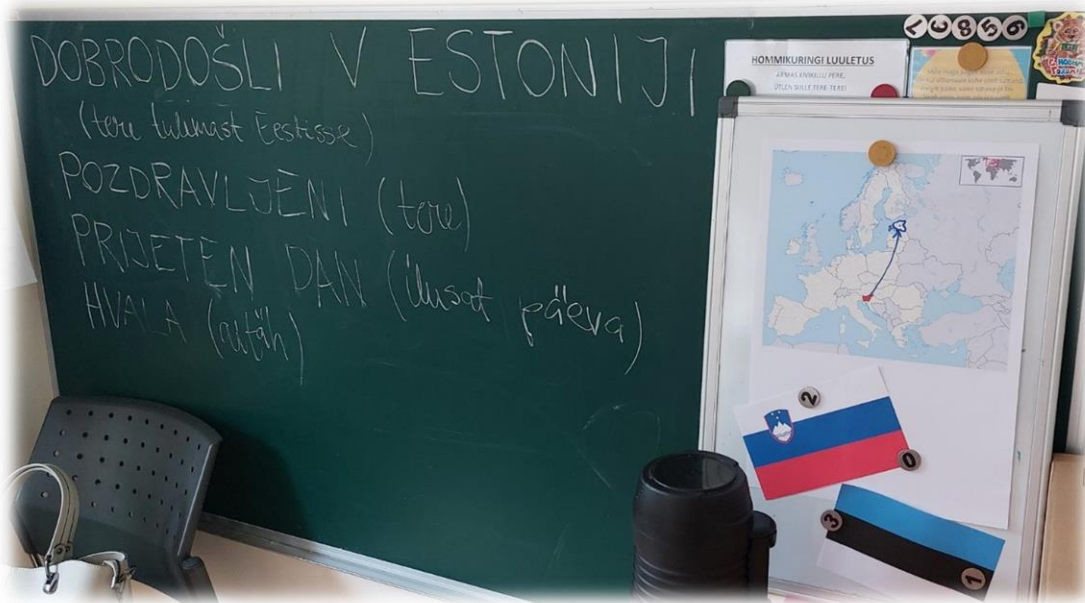 DOBRODOŠLI V ESTONIJI
(tere tulimast Eestisse)
POZDRAVLJENI (tere)
PRIJETEN DAN (ilusat päeva)
HVALA (aitäh)
HOMMIKURINGI LUULETUS
ARMAS KIVIKULLI PERE,
ÜTLEN SULLE TERE-TERE!
1 C 8 5 6
2
0
3
1